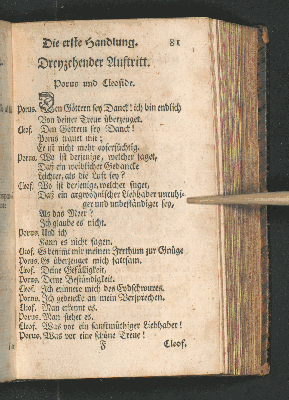 Die erste Handlung. 81
Dreyzehender Auftritt.
Porus und Cleofide.
Porus. Den Göttern sey Danck! ich bin endlich
Von deiner Treue überzeuget.
Cleof. Den Göttern sey Danck!
Porus trauet mir;
Er ist nicht mehr eyfersüchtig.
Porus. Wo ist derjenige, welcher saget,
Daß ein weiblicher Gedancke
Leichter, als die Luft sey?
Cleof. Wo ist derjenige, welcher saget,
Daß ein argwöhnischer Liebhaber unruhi-
ger und unbeständiger sey,
Als das Meer?
Ich glaube es nicht.
Porus. Und ich
Kann es nicht sagen.
Cleof. benimt mir meinen Irrthum zur Gnüge
Porus. überzeuget mich sattsam.
Cleof. Deine Gefälligkeit,
Porus. Deine Beständigkeit.
Cleof. Ich erinnere mich des Eydschwures.
Porus. Ich gedencke an mein Versprechen.
Cleof. Man erkennt es.
Porus. Man siehet es.
Cleof. Was vor ein sanftmüthiger Liebhaber!
Porus. Was vor eine schöne Treue!
F Cleof.